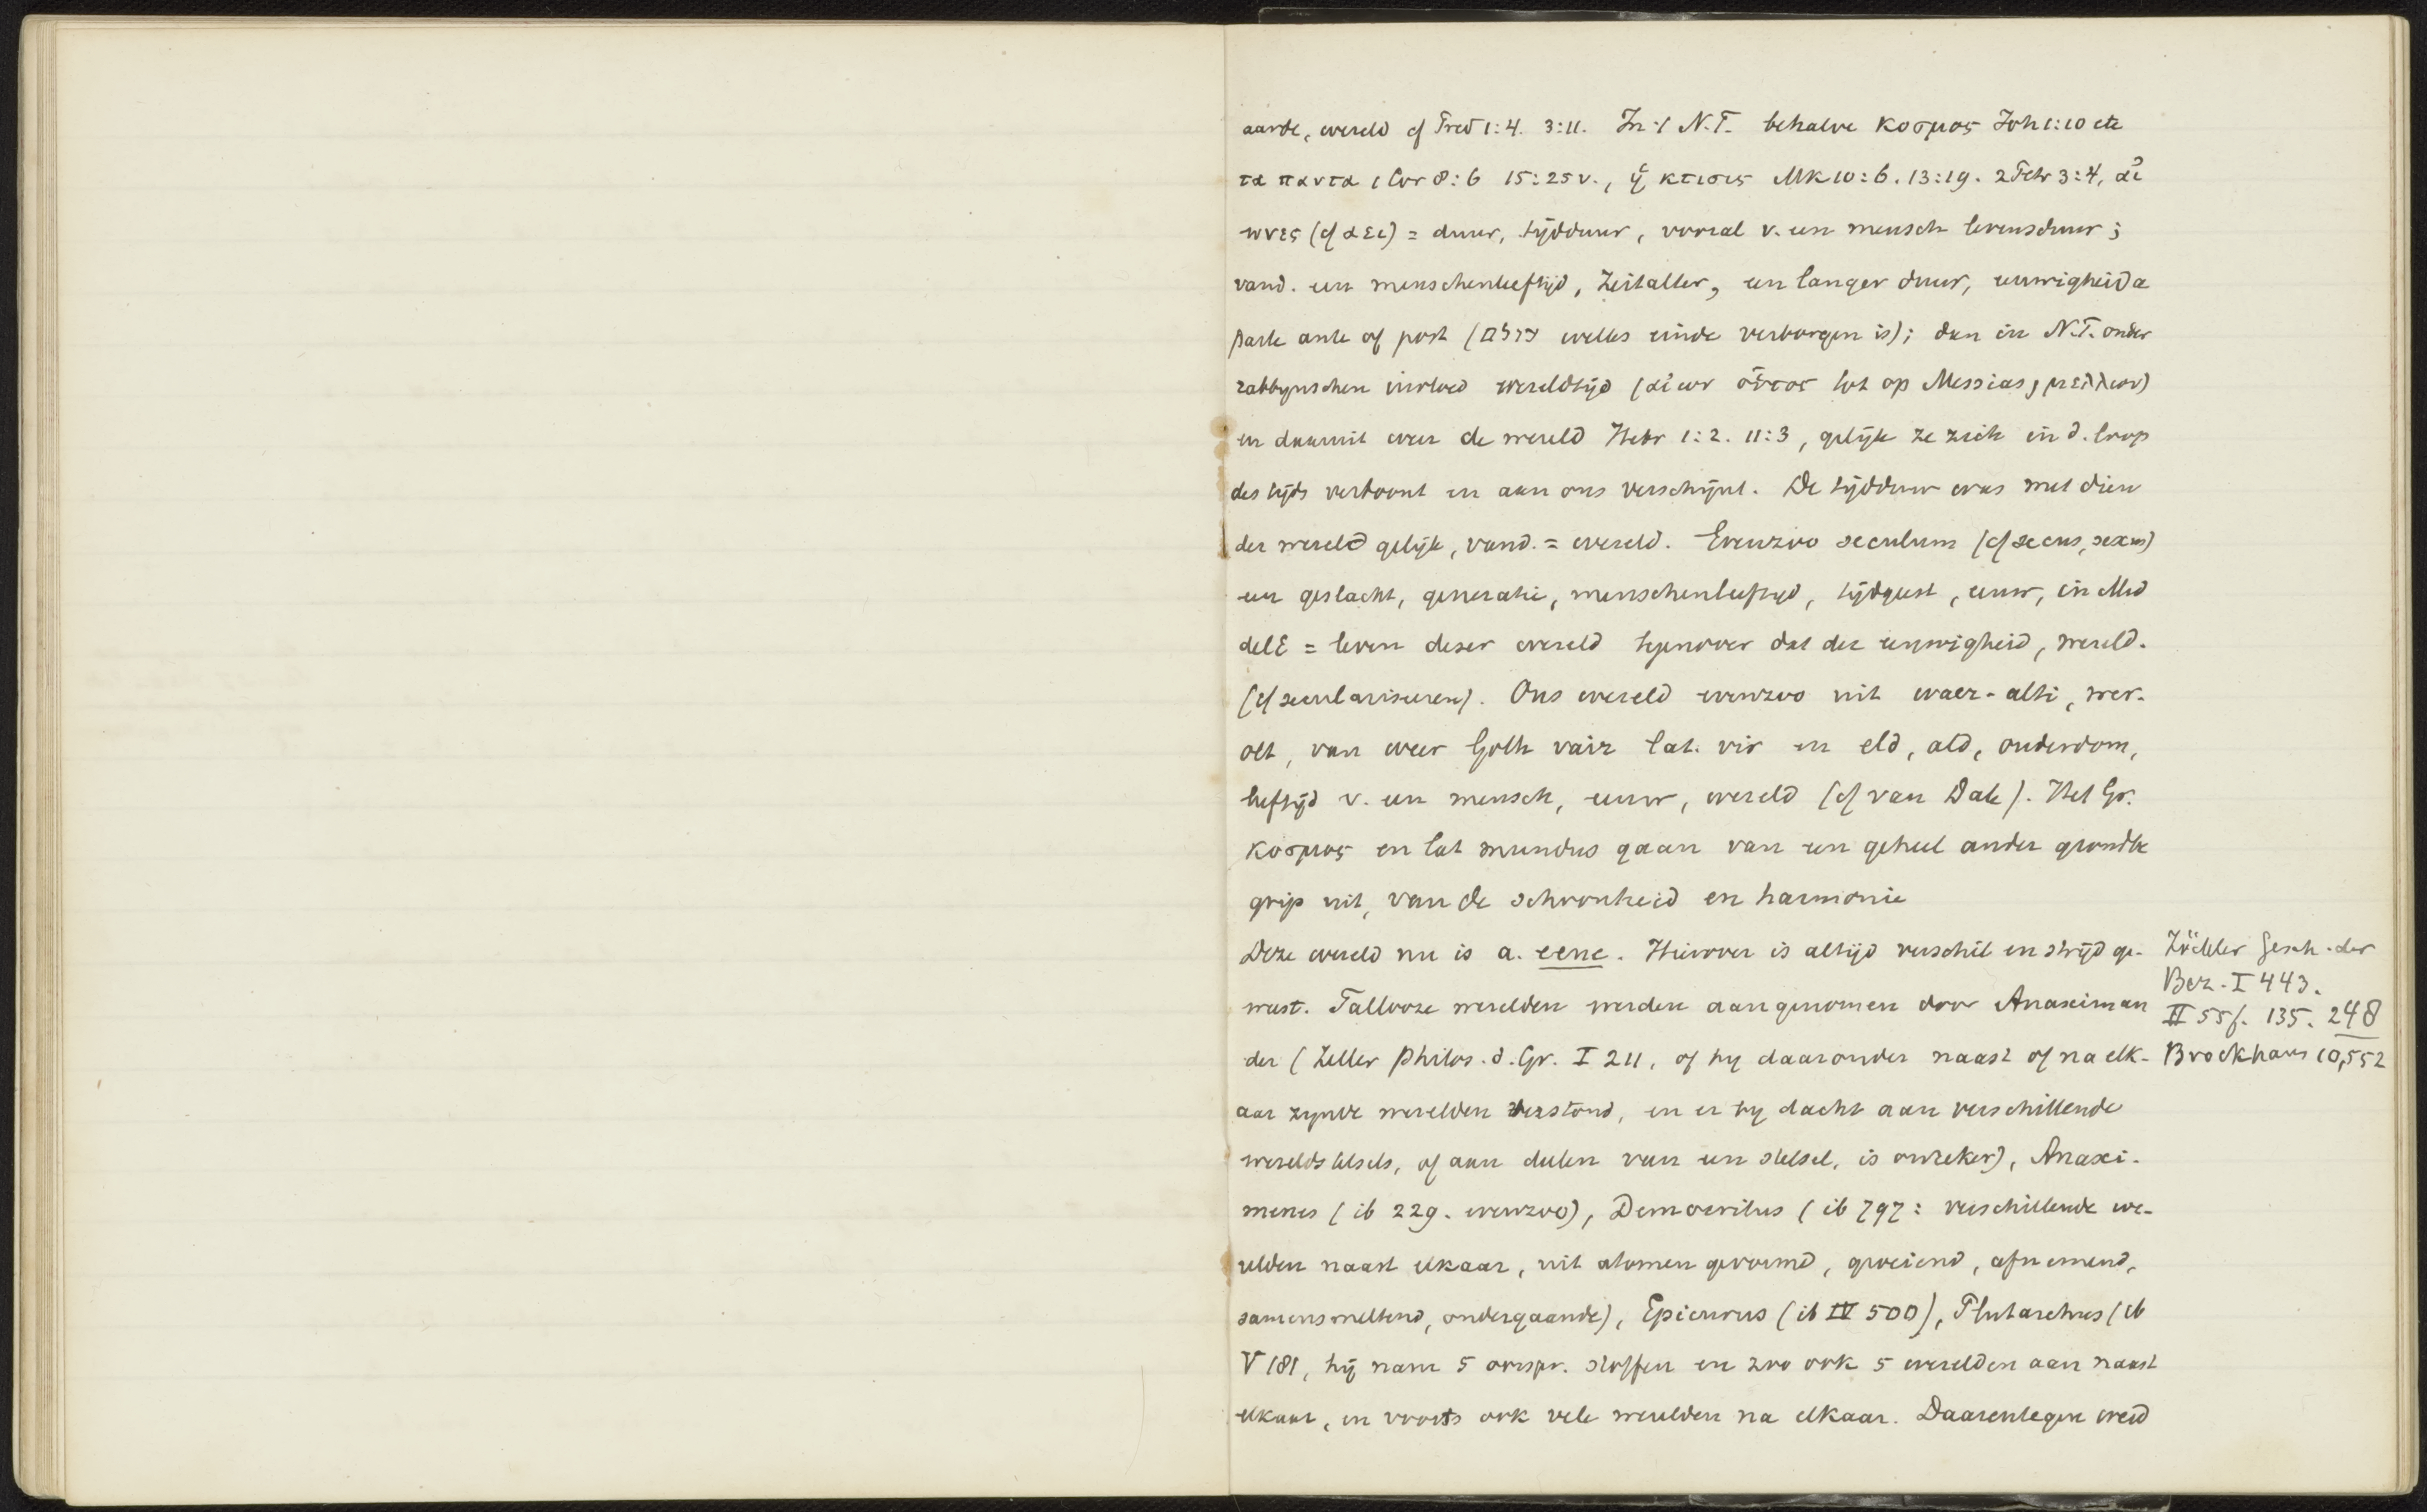 aarde, wereld cf Pred 1:4. 3:11. In 't N.T. behalve κοσμος Joh 1:10 etc
τα παντα 1 Cor 8:6 15:25v., ἡ κτισις Mk 10:6. 13:19. 2 Petr 3:4, αἰ
ωνες (cf αει) = duur, tijdduur, vooral v. een mensch levensduur;
vand. een menschenleeftijd, Zeitalter, een langer duur, eeuwigheid a
parte ante of post (עולם welks einde verborgen is); dan in N.T. onder
rabbijnschen invloed wereldtijd (αἰων οὗτος tot op Messias, μελλων)
en daarmit weer de wereld Hebr 1:2. 11:3, gelijk ze zich in d. loop
des tijds vertoont en aan ons verschijnt. De tijdduur was met dien
der wereld gelijk, vand. = wereld. Evenzoo seculum (cf secus, sexus)
een geslacht, generatie, menschenleeftijd, tijdgeest, eeuw, in Mid
delE = leven dezer wereld tegenover dat der eeuwigheid, wereld.
(cf seculariseren). Ons wereld evenzoo uit waer-alti, wer-
olt, van weer Goth vair lat. vir en eld, ald, ouderdom,
leeftijd v. een mensch, eeuw, wereld (cf van Dale). Het Gr.
κοσμος en lat mundus gaan van een geheel ander grondbe
grip uit, van de schoonheid en harmonie
Deze wereld nu is a. eene. Hierover is altijd verschil en strijd ge-
weest. Tallooze werelden werden aangenomen door Anaximan
der (Zeller Philos. d. Gr. I 211, of hij daaronder naast of na elk-
aar zijnde werelden verstond, en er hij dacht aan verschillende
wereldstelsels, of aan deelen van een stelsel, is onzeker), Anaxi-
menes (ib 229. evenzoo), Democritus (ib 797: verschillende we-
relden naast elkaar, uit atomen gevormd, groeiend, afnemend,
samensmeltend, ondergaande), Epicurus (ib IV 500), Plutarchus (ib
V 181, hij nam 5 oorspr. stoffen en zoo ook 5 werelden aan naast
elkaar, en voorts ook vele werelden na elkaar. Daarentegen werd
Zöckler Gesch. der
Bez. I 443.
II 55f. 135. 248
Brockhaus 10,552